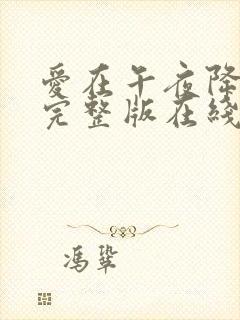 愛在午夜降
完整版在綫
馮鞏